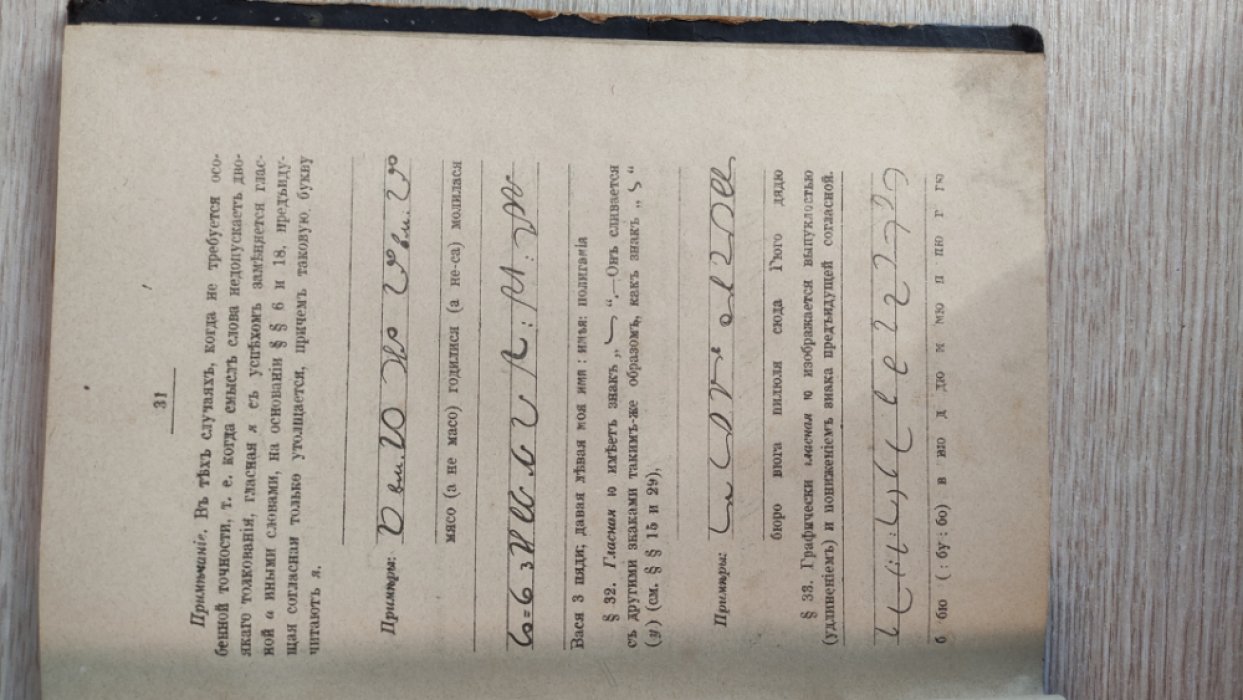 31
Примѣчаніе. Въ тѣхъ случаяхъ, когда не требуется осо-
бенной точности, т. е. когда смыслъ слова недопускаетъ дво-
якаго толкованія, гласная я съ успѣхомъ замѣняется глас-
ной а иными словами, на основаніи § § 6 и 18, предъиду-
щая согласная только утолщается, причемъ таковую, букву
читаютъ я.
Примѣры: вм. вм.
мясо (а не масо) годилися (а не-са) молилася
Вася 3 пяди; давая лѣвая моя имя : имья: полиганія
§ 32. Гласная ю имѣетъ знакъ „ “.—Онъ сливается
съ другими знаками такимъ-же образомъ, какъ знакъ „ “
(у) (см. § § 15 и 29),
Примѣры:
бюро вюга пилюля сюда Гюго дядю
§ 33. Графически гласная ю изображается выпуклостью
(удлиненіемъ) и пониженіемъ знака предъидущей согласной.
б бю ( : бу : бо) в вю д дю м мю п пю г гю